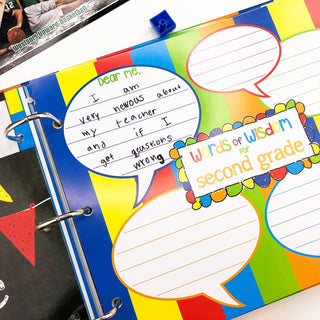 Dear me,
I am
very nevous about
my teacher
and if I
get qcustions
wrong
words of wisdom
for
second grade